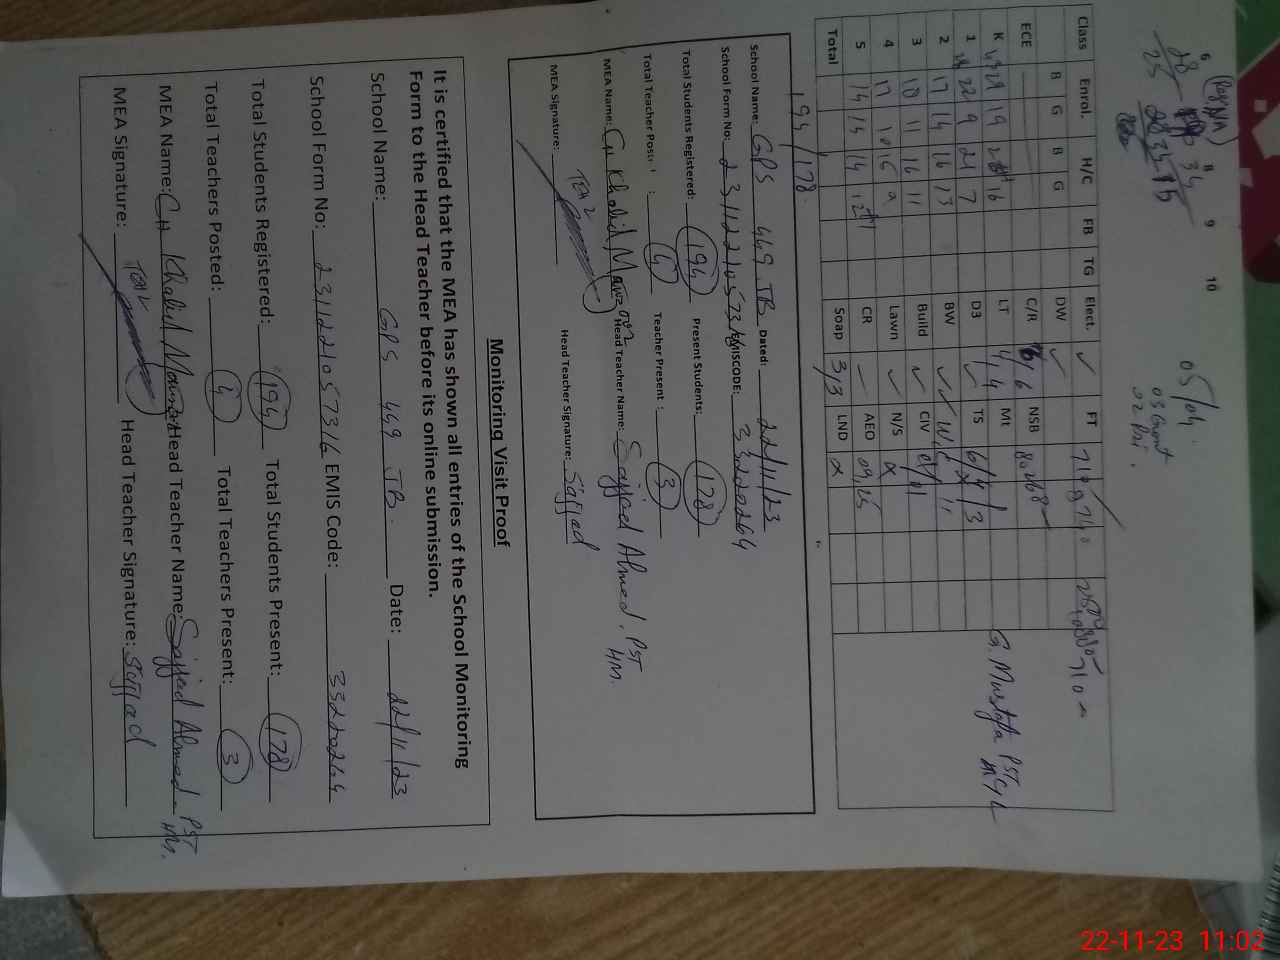 6 (Reg NA) 8 9 10
28 34
25
05/04
Class Enrol. H/C FB TG Elect. ✓ FT
B G B G DW ✓
ECE C/R 6/6 NSB 80268
K 19 16 LT 4/4 Mt
G. Mustafa PST
1 22 9 21 7 D3 ✓ TS 6/4/3
2 17 14 16 13 BW ✓✓
3 10 11 16 11 Build ✓ CIV
4 17 10 15 9 Lawn ✓ N/S
5 14 15 14 CR — AEO
Total Soap 3/3 LND
194/178
School Name: GPS 449 JB Dated: 22/11/23
School Form No: 2311221057316 EMISCODE: 33220264
Total Students Registered: 194 Present Students: 178
Total Teacher Post: 4 Teacher Present: 3
MEA Name: CH Khalid Head Teacher Name: Sajjad Ahmed, PST HM.
MEA Signature: Head Teacher Signature: Sajjad
Monitoring Visit Proof
It is certified that the MEA has shown all entries of the School Monitoring
Form to the Head Teacher before its online submission.
School Name: GPS 449 JB. Date: 22/11/23
School Form No: 2311221057316 EMIS Code: 33220264
Total Students Registered: 194 Total Students Present: 178
Total Teachers Posted: 4 Total Teachers Present: 3
MEA Name: CH Khalid Head Teacher Name: Sajjad Ahmed PST HM.
MEA Signature: Head Teacher Signature: Sajjad
22-11-23 11:02